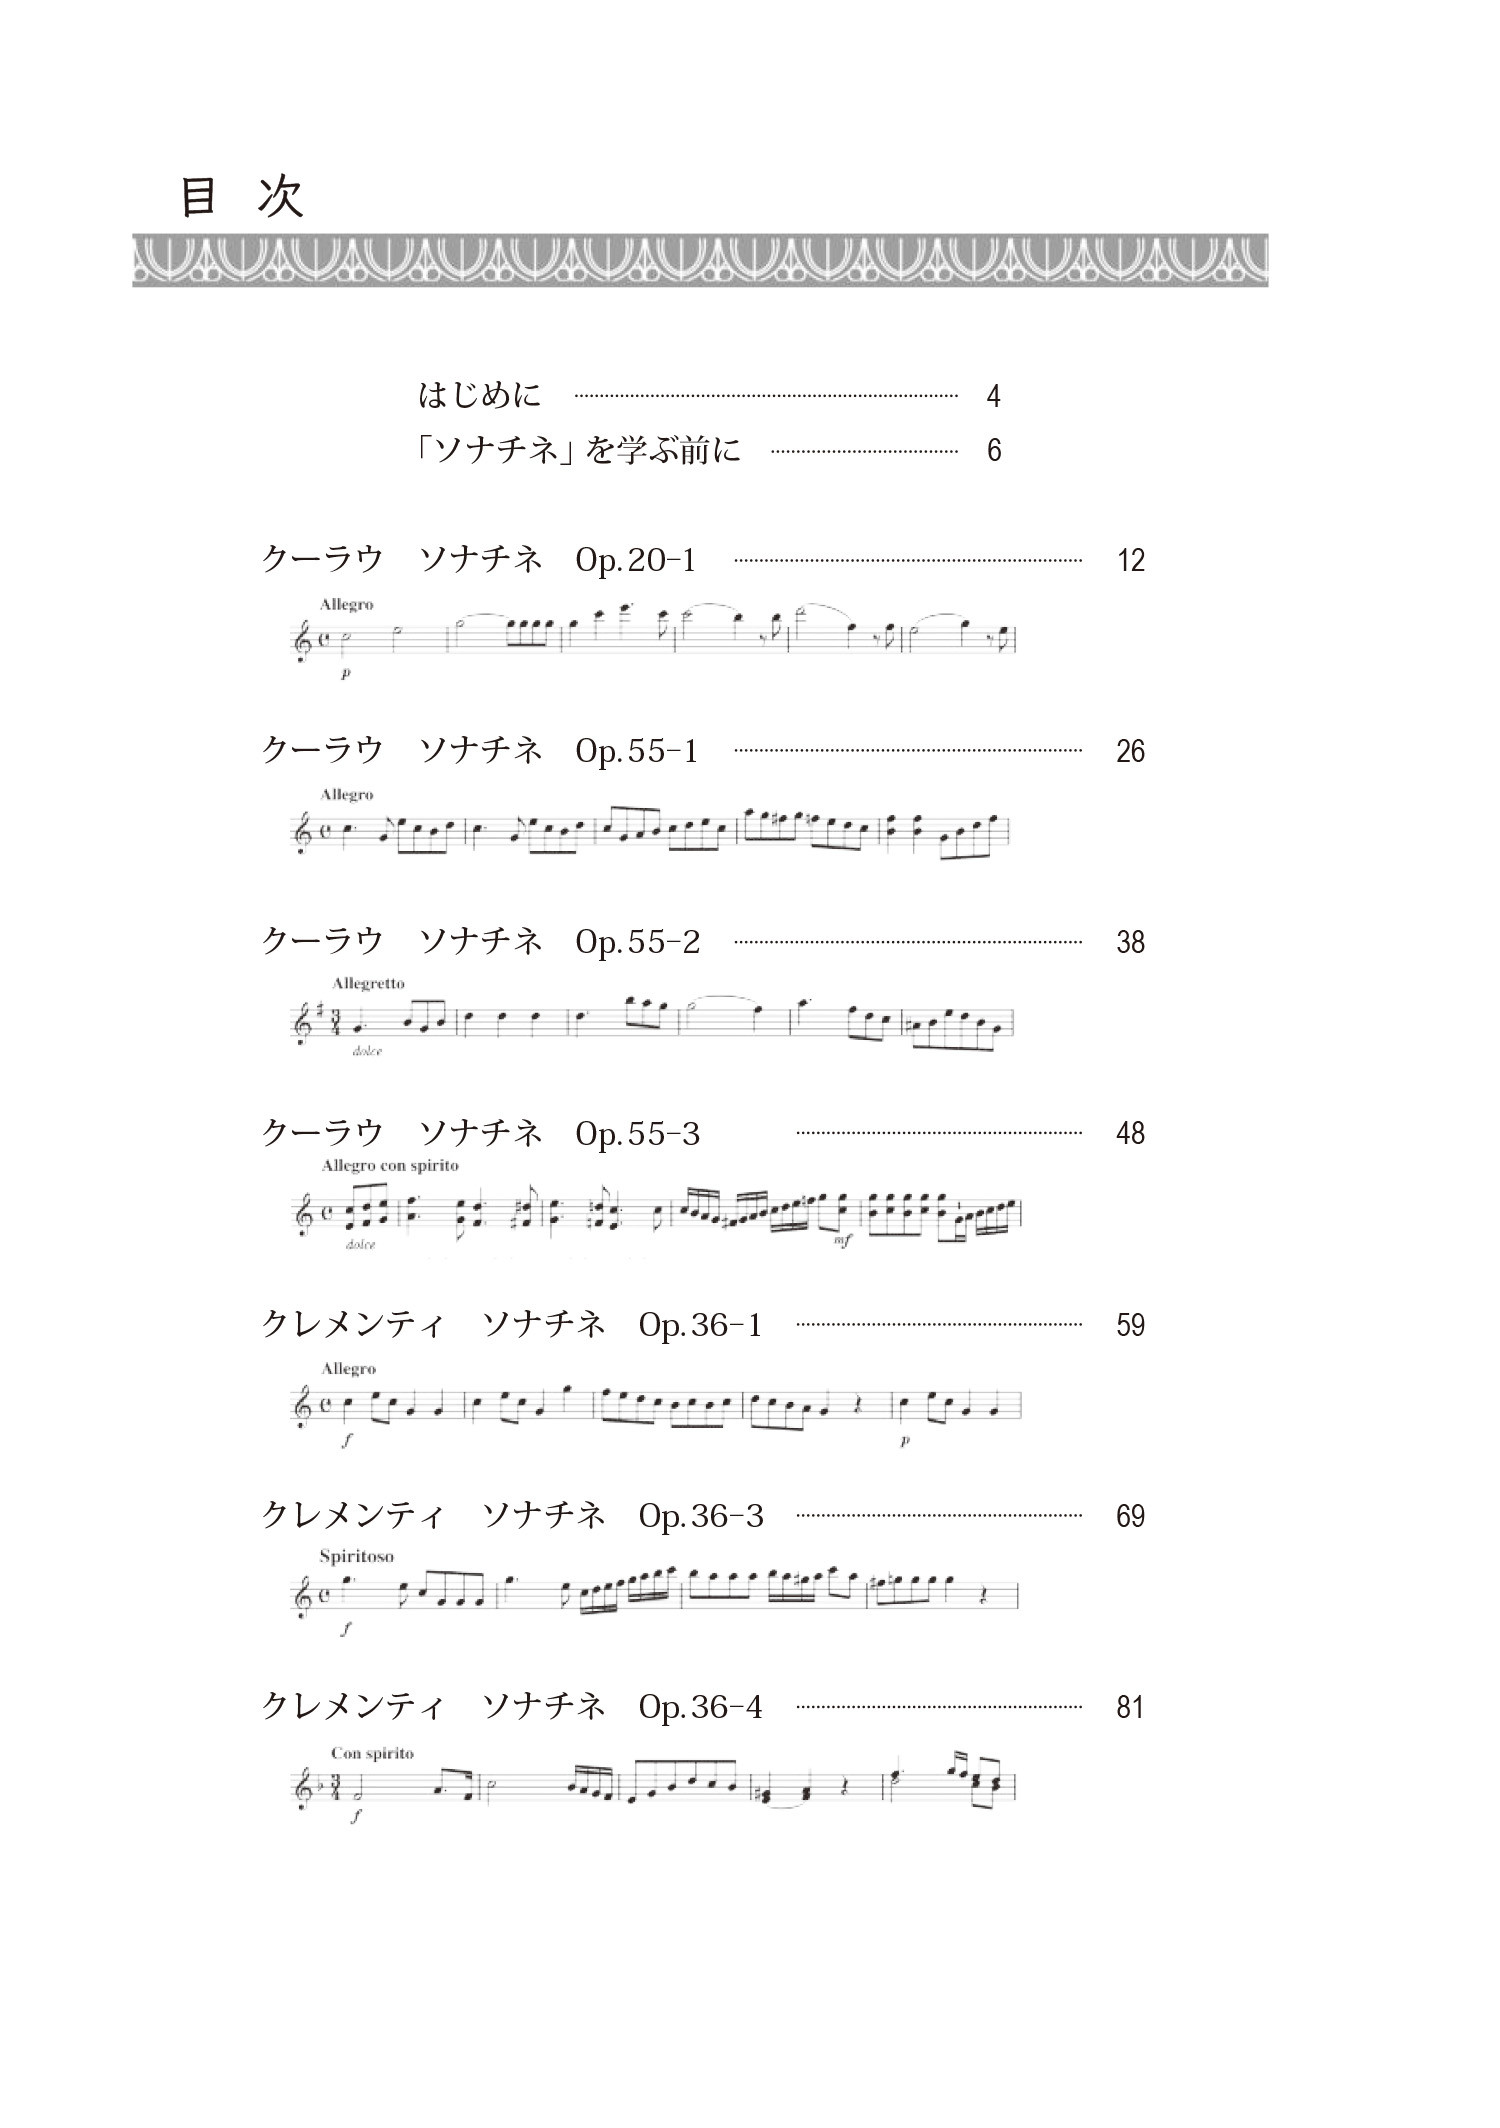 目 次
はじめに ………………………………… 4
「ソナチネ」を学ぶ前に ………………… 6
クーラウ ソナチネ Op.20-1 ………………………………… 12
Allegro
p
クーラウ ソナチネ Op.55-1 ………………………………… 26
Allegro
クーラウ ソナチネ Op.55-2 ………………………………… 38
Allegretto
dolce
クーラウ ソナチネ Op.55-3 ………………………… 48
Allegro con spirito
dolce mf
クレメンティ ソナチネ Op.36-1 ………………………… 59
Allegro
f p
クレメンティ ソナチネ Op.36-3 ………………………… 69
Spiritoso
f
クレメンティ ソナチネ Op.36-4 ………………………… 81
Con spirito
f